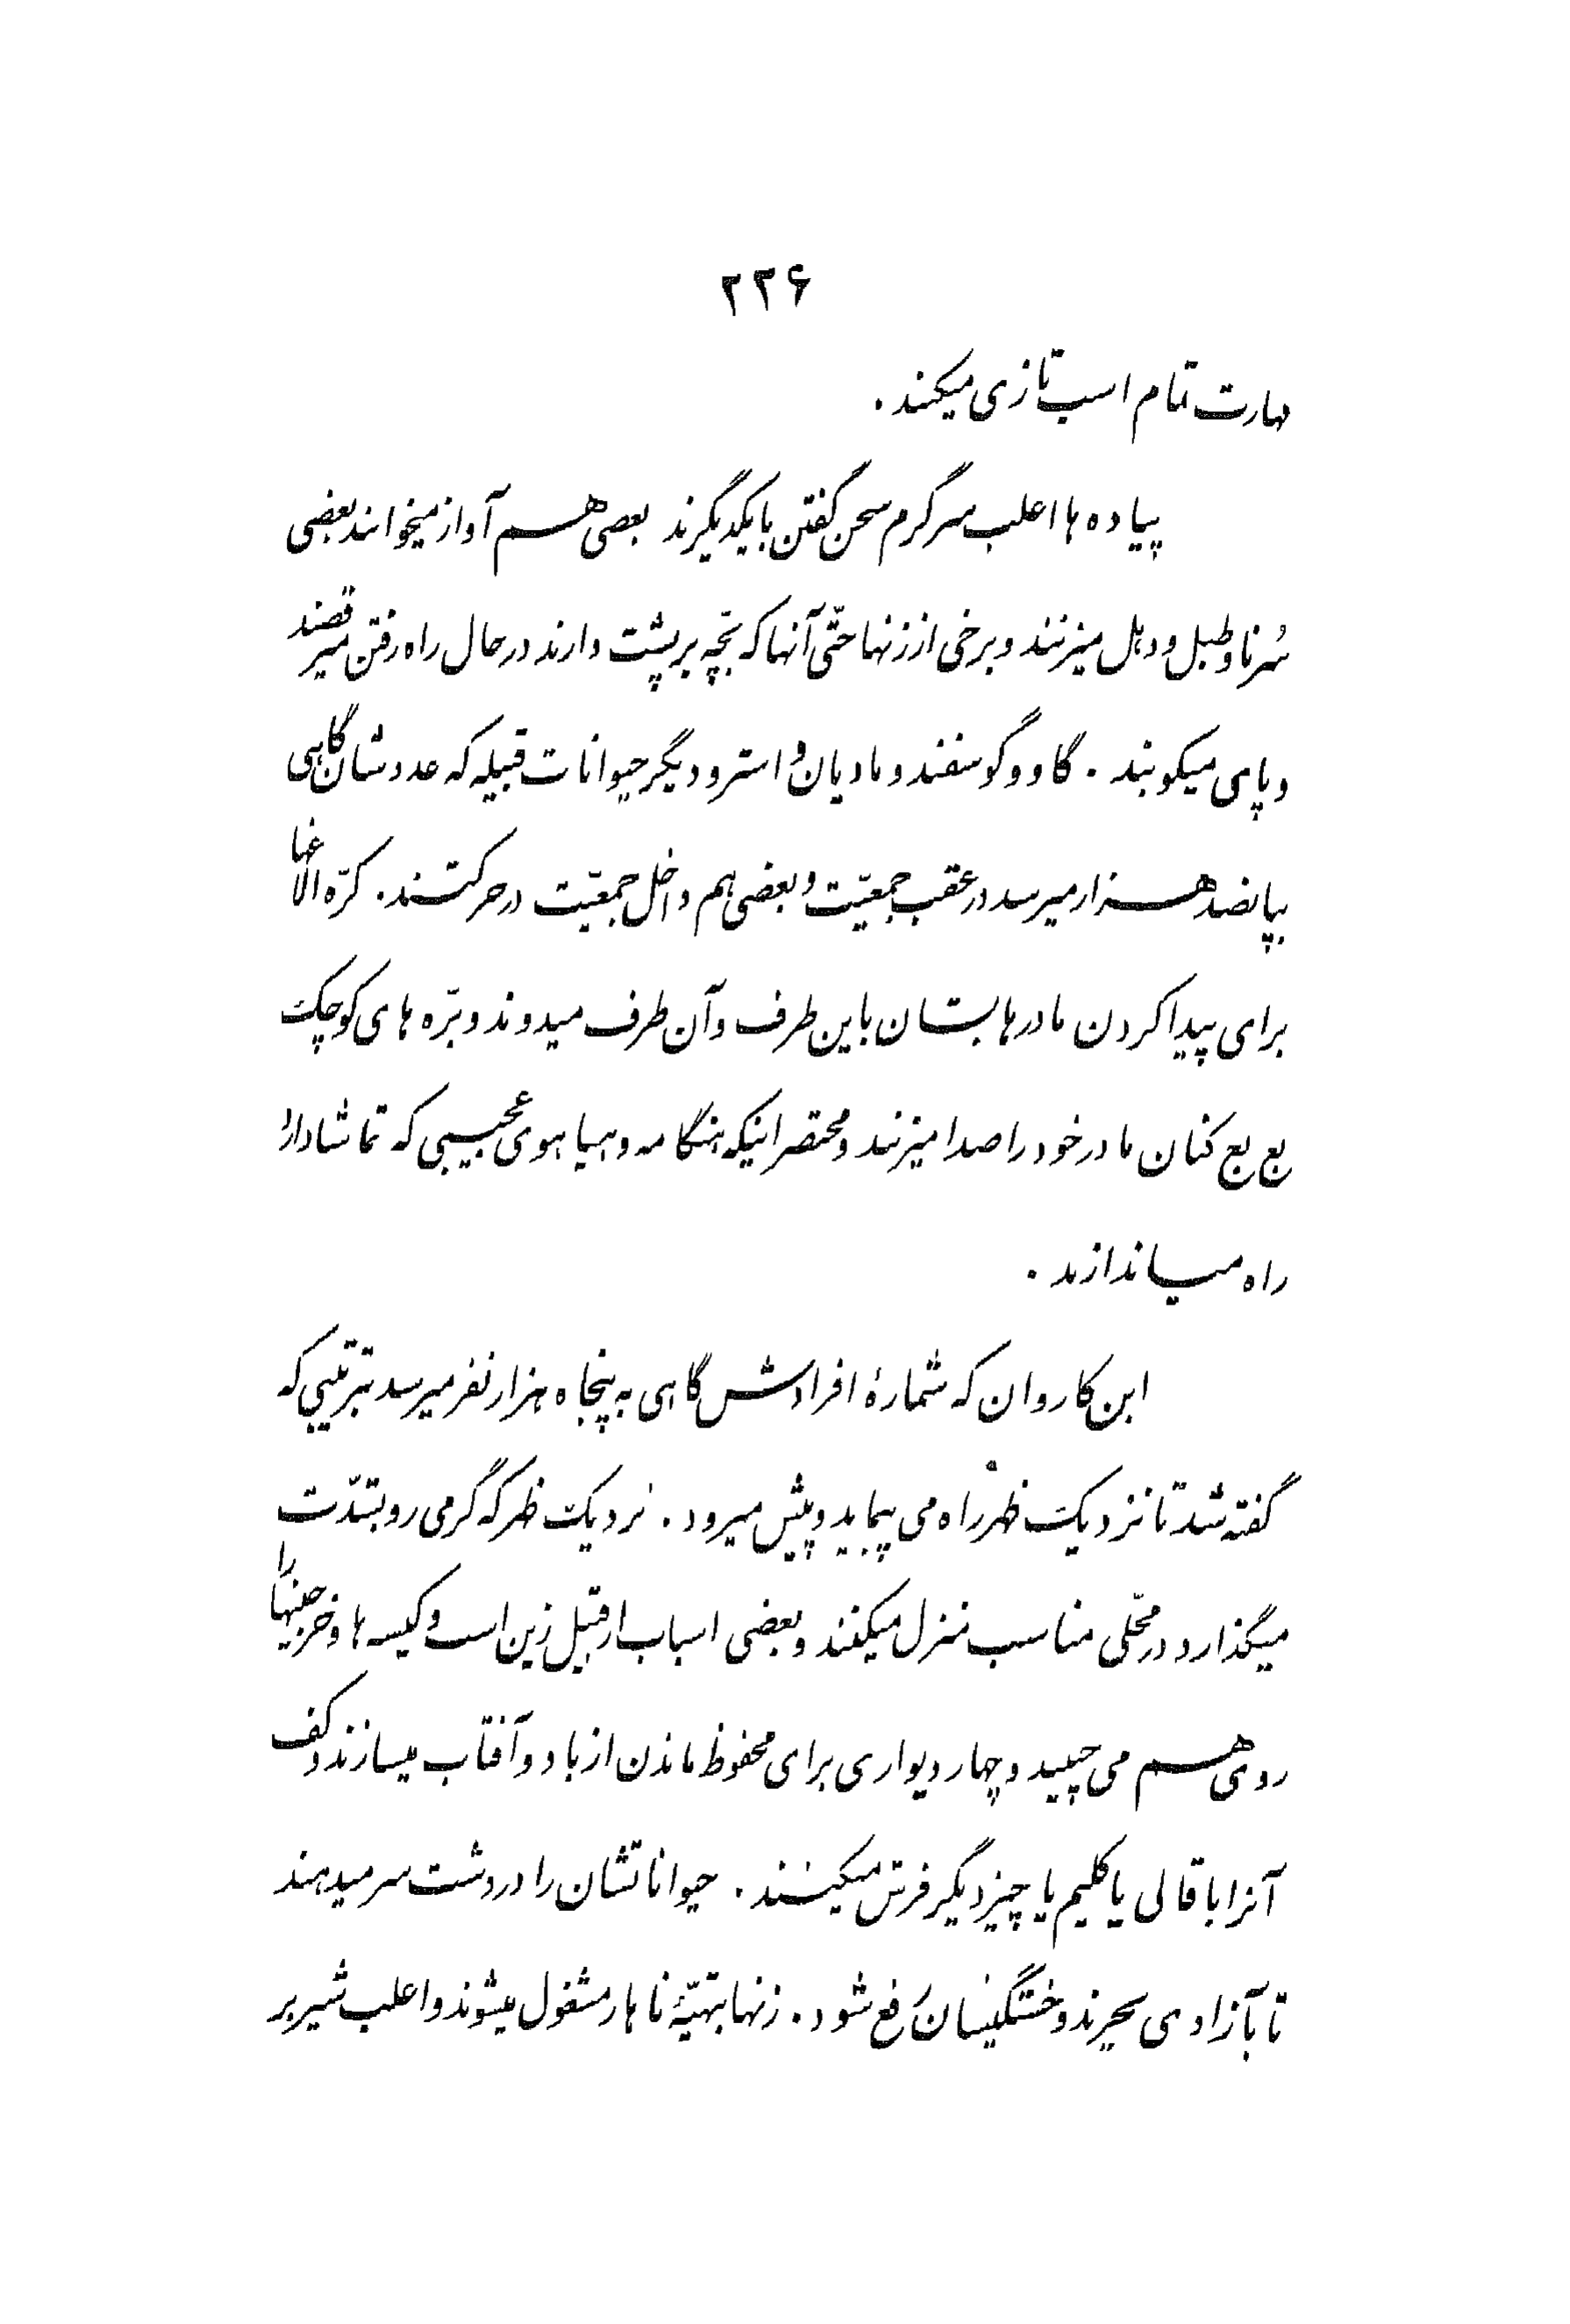 ۲۲۶
مهارت تمام اسب تازی میکند .
پیاده ها اغلب سرگرم سخن گفتن با یکدیگرند بعضی هم آواز میخوانند بعضی
سُرنا و طبل و دهل میزنند و برخی از زنها حتّی آنها که بچّه بر پشت دارند در حال راه رفتن میرقصند
و پای میکوبند . گاو و گوسفند و مادیان و استر و دیگر حیوانات قبیله که عددشان گاهی
بپانصد هزار میرسد در عقب جمعیّت و بعضی هم داخل جمعیّت در حرکتند . کرّه الاغها
برای پیدا کردن مادرهایشان باین طرف و آن طرف میدوند و برّه های کوچک
بع بع کنان مادر خود را صدا میزنند و مختصر اینکه هنگامه و هیاهوی عجیبی که تماشا دارد
راه میاندازند .
این کاروان که شمارهٔ افرادش گاهی به پنجاه هزار نفر میرسد بترتیبی که
گفته شد تا نزدیک ظهر راه می پیماید و پیش میرود . نزدیک ظهر که گرمی رو بشدّت
میگذارد در محلّی مناسب منزل میکنند و بعضی اسباب از قبیل زین اسب و کیسه ها و خرجینها را
روی هم می چینند و چهار دیواری برای محفوظ ماندن از باد و آفتاب میسازند و کف
آنرا با قالی یا کلیم یا چیز دیگر فرش میکنند . حیواناتشان را در دشت سر میدهند
تا بآزادی بچرند و خستگیشان رفع شود . زنها بتهیّهٔ ناهار مشغول میشوند و اغلب شیر بر